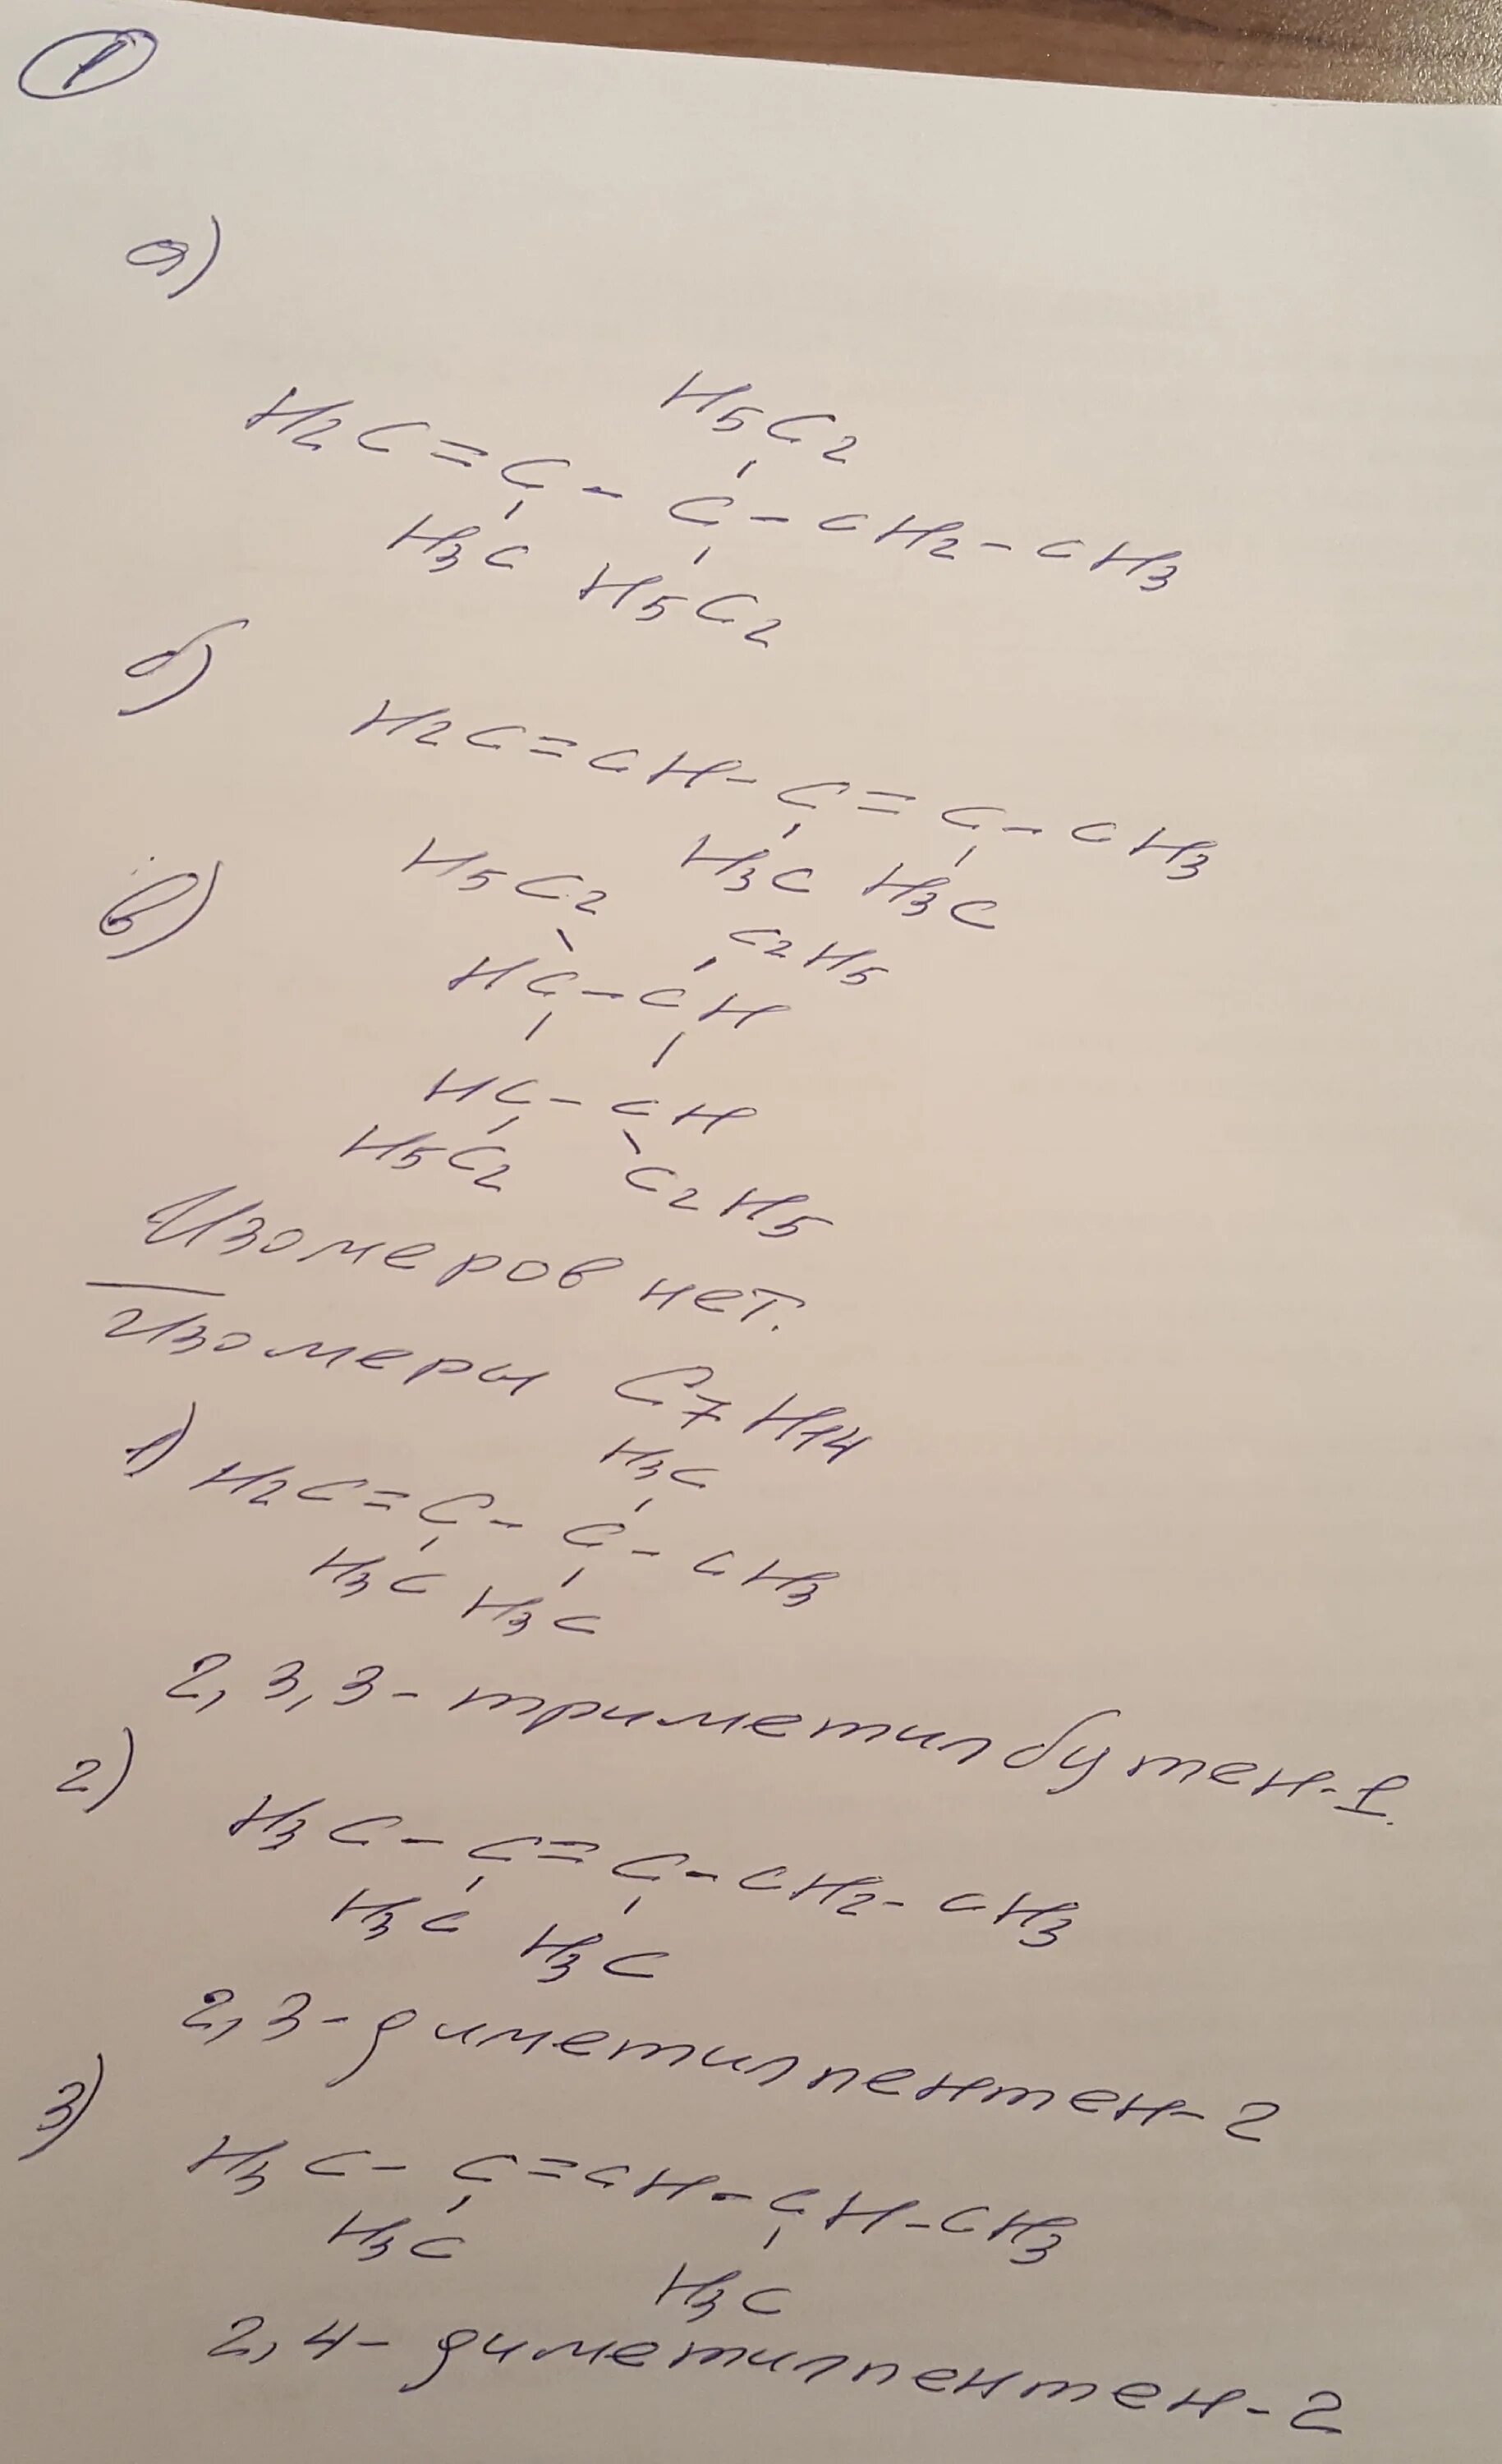 1
а)
H5C2
H2C=C-C-CH2-CH3
H3C H5C2
б)
H2C=CH-C=C-CH3
H3C H3C
в)
H5C2 C2H5
HC-CH
HC-CH
H5C2 C2H5
Изомеров нет.
Изомеры C7H14
H3C
1) H2C=C-C-CH3
H3C H3C
2,3,3-триметилбутен-1.
2)
H3C-C=C-CH2-CH3
H3C H3C
2,3-диметилпентен-2
3)
H3C-C=CH-CH-CH3
H3C H3C
2,4-диметилпентен-2